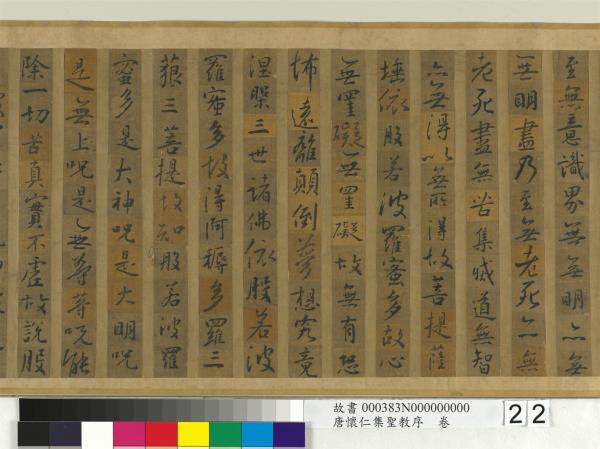 至無意識界無無明亦無
無明盡乃至無老死亦無
老死盡無苦集滅道無智
亦無得以無所得故菩提薩
埵依般若波羅蜜多故心
無罣礙無罣礙故無有恐
怖遠離顛倒夢想究竟
涅槃三世諸佛依般若波
羅蜜多故得阿耨多羅三
藐三菩提故知般若波羅
蜜多是大神咒是大明咒
是無上咒是無等等咒能
除一切苦真實不虛故說般
故書 000383N000000000
唐懷仁集聖教序 卷
22